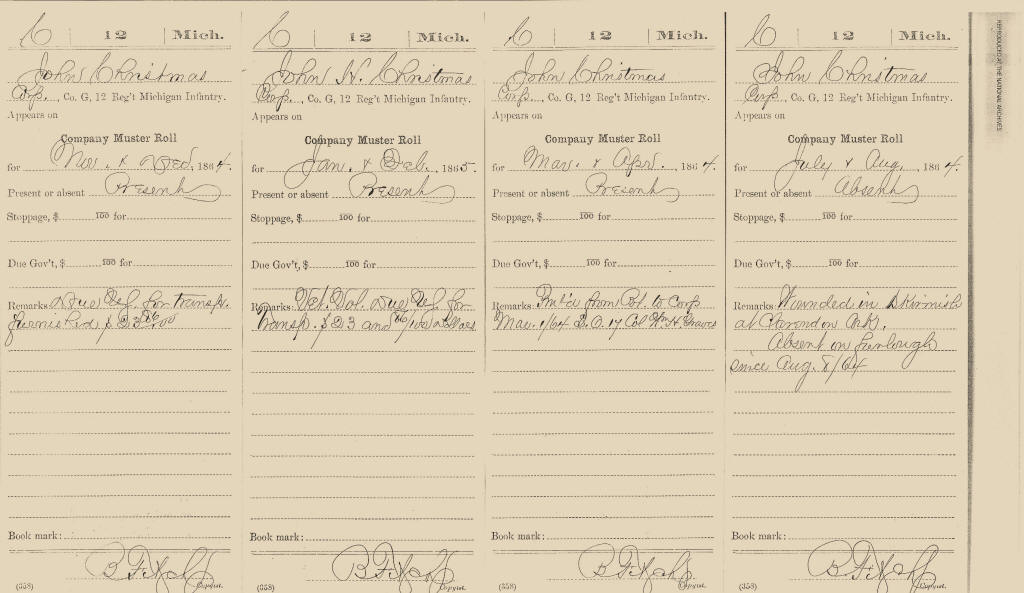 C | 12 | Mich.
John Christmas
Corp., Co. G, 12 Reg't Michigan Infantry.
Appears on
Company Muster Roll
for Nov. & Dec., 1864.
Present or absent Present
Stoppage, $ 100 for
Due Gov't, $ 100 for
Remarks: Due U.S. for transp.
furnished $23 76/100
Book mark:
(358) Copyist.
C | 12 | Mich.
John N. Christmas
Corp., Co. G, 12 Reg't Michigan Infantry.
Appears on
Company Muster Roll
for Jan. & Feb., 1865.
Present or absent Present
Stoppage, $ 100 for
Due Gov't, $ 100 for
Remarks: Vet. Vol. Due U.S. for
Transp. $23 and 76/100 dollars
Book mark:
(358) Copyist.
C | 12 | Mich.
John Christmas
Corp., Co. G, 12 Reg't Michigan Infantry.
Appears on
Company Muster Roll
for Mar. & Apr., 1864.
Present or absent Present
Stoppage, $ 100 for
Due Gov't, $ 100 for
Remarks: from to Corp
Mar. 1/64 S.O. 17 Col Wm H. Graves
Book mark:
(358) Copyist.
C | 12 | Mich.
John Christmas
Corp, Co. G, 12 Reg't Michigan Infantry.
Appears on
Company Muster Roll
for July & Aug., 1864.
Present or absent Absent
Stoppage, $ 100 for
Due Gov't, $ 100 for
Remarks: Wounded in Skirmish
at Clarendon Ark.
Absent on furlough
since Aug. 8/64
Book mark:
(358) Copyist.
REPRODUCED AT THE NATIONAL ARCHIVES